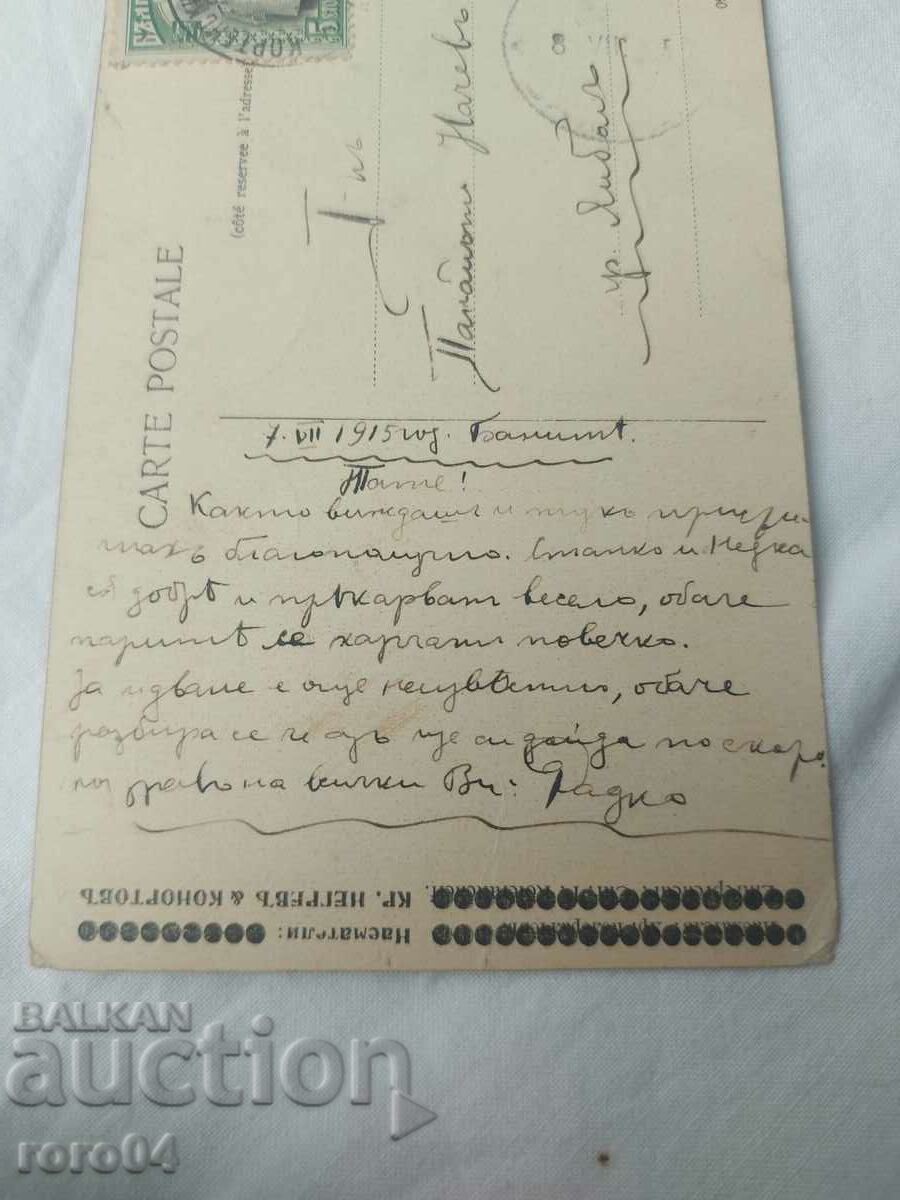 CARTE POSTALE
(côté reservée à l'adresse)
Г-нъ
Панайотъ Начевъ
гр. Ямболъ
7. VII 1915 год. Банитѣ.
Тате!
Както виждашъ и тукъ присти-
гнахъ благополучно. Станко и Недка
сѫ добрѣ и прѣкарватъ весело, обаче
паритѣ се харчатъ повечко.
За идване е още неизвѣстно, обаче
разбира се че азъ ще си дойда по скоро.
поздравъ на всички Ви: Радко
Насматели:
КР. НЕГРЕВЪ & КОНОРТОВЪ
BALKAN
auction
roro04